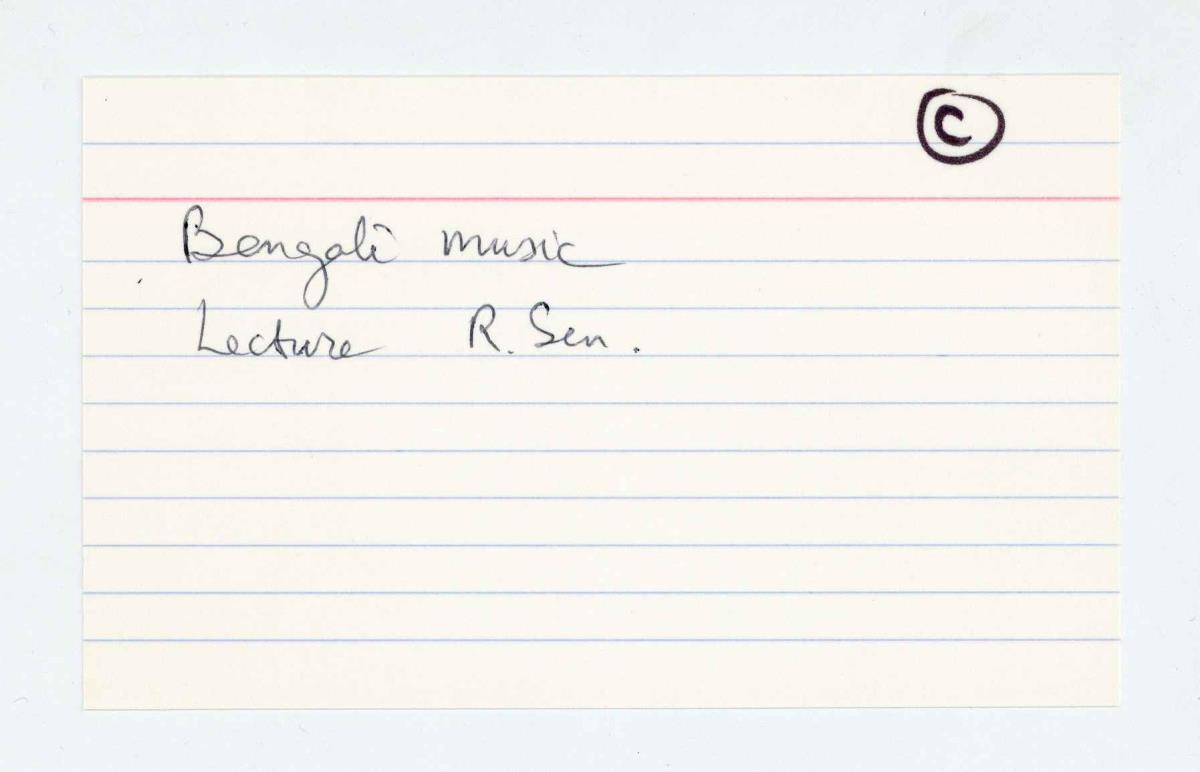 ©
Bengali music
Lecture R. Sen.